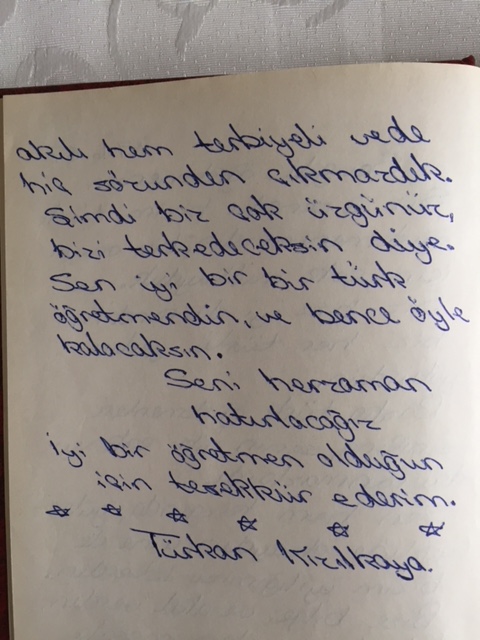 akılı hem terbiyeli vede
hiç sözünden çıkmazdık.
Şimdi biz çok üzgünüz,
bizi terkedeceksin diye.
Sen iyi bir bir türk
öğretmendin, ve bence öyle
kalacaksın.
Seni herzaman
hatırlacağız
iyi bir öğretmen olduğun
için teşekkür ederim.
☆ ☆ ☆ ☆ ☆ ☆
Türkan Kızılkaya.